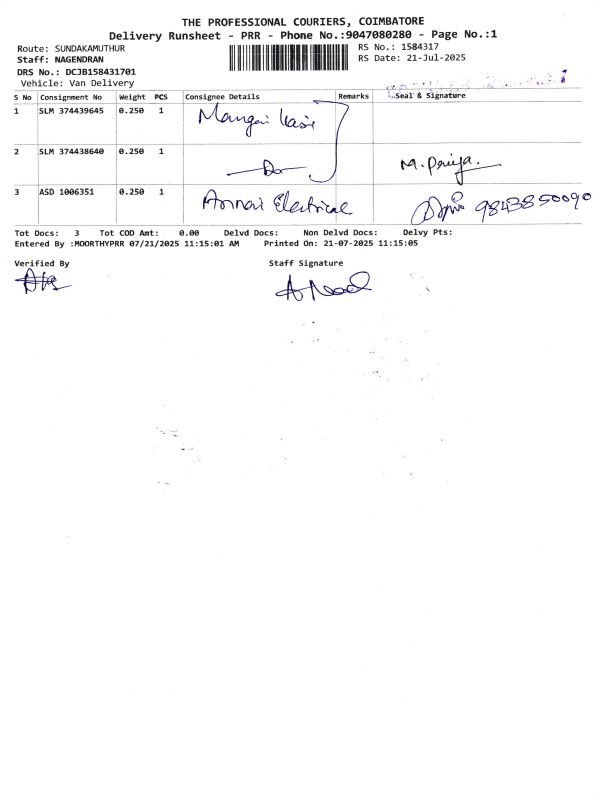 THE PROFESSIONAL COURIERS, COIMBATORE
Delivery Runsheet - PRR - Phone No.:9047080280 - Page No.:1
Route: SUNDAKAMUTHUR
RS No.: 1584317
Staff: NAGENDRAN
RS Date: 21-Jul-2025
DRS No.: DCJB158431701
Vehicle: Van Delivery
S No Consignment No Weight PCS Consignee Details Remarks Seal & Signature
1 SLM 374439645 0.250 1 Mangai
2 SLM 374438640 0.250 1 Do M. Priya.
3 ASD 1006351 0.250 1 Annai Electrical 9843850090
Tot Docs: 3 Tot COD Amt: 0.00 Delvd Docs: Non Delvd Docs: Delvy Pts:
Entered By :MOORTHYPRR 07/21/2025 11:15:01 AM Printed On: 21-07-2025 11:15:05
Verified By Staff Signature